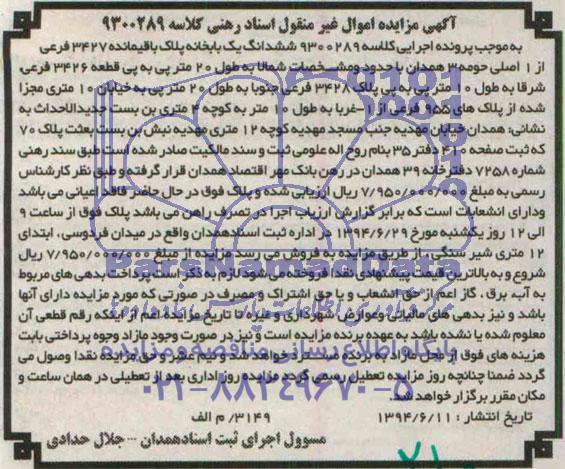 آگهی مزایده اموال غیر منقول اسناد رهنی کلاسه ۹۳۰۰۲۸۹
به موجب پرونده اجرایی کلاسه ۹۳۰۰۲۸۹ ششدانگ یک بابخانه پلاک باقیمانده ۳۴۲۷ فرعی
از ۱ اصلی حومه ۳ همدان با حدود ومشخصات شمالا به طول ۲۰ متر پی به پی قطعه ۳۴۲۶ فرعی
شرقا به طول ۱۰ متر پی به پی پلاک ۳۴۲۸ فرعی جنوبا به طول ۲۰ متر پی به خیابان ۱۰ متری مجزا
شده از پلاک های ۹۵۵ فرعی از ۱-غربا به طول ۱۰ متر به کوچه ۴ متری بن بست جدیدالاحداث به
نشانی: همدان خیابان مهدیه جنب مسجد مهدیه کوچه ۱۲ متری مهدیه نبش بن بست بعثت پلاک ۷۰
که ثبت صفحه ۴۱۰ دفتر ۳۵ بنام روح اله علومی ثبت و سند مالکیت صادر شده است طبق سند رهنی
شماره ۷۲۵۸ دفترخانه ۳۹ همدان در رهن بانک مهر اقتصاد همدان قرار گرفته و طبق نظر کارشناس
رسمی به مبلغ ۷/۹۵۰/۰۰۰/۰۰۰ ریال ارزیابی شده و پلاک فوق در حال حاضر فاقد اعیانی می باشد
ودارای انشعابات است که برابر گزارش ارزیاب اجرا در تصرف راهن می باشد پلاک فوق از ساعت ۹
الی ۱۲ روز یکشنبه مورخ ۱۳۹۴/۶/۲۹ در اداره ثبت اسنادهمدان واقع در میدان فردوسی، ابتدای
۱۲ متری شیر سنگی، از طریق مزایده به فروش می رسد مزایده از مبلغ ۷/۹۵۰/۰۰۰/۰۰۰ ریال
شروع و به بالاترین قیمت پیشنهادی نقدا فروخته می شود لازم به ذکر است پرداخت بدهی های مربوط
به آب، برق، گاز اعم از حق انشعاب و یا حق اشتراک و مصرف در صورتی که مورد مزایده دارای آنها
باشد و نیز بدهی های مالیاتی وعوارض شهرداری و غیره تا تاریخ مزایده اعم از اینکه رقم قطعی آن
معلوم شده یا نشده باشد به عهده برنده مزایده است و نیز در صورت وجود مازاد وجوه پرداختی بابت
هزینه های فوق از محل مازاد به برنده مسترد خواهد شد و نیم عشر و حق مزایده نقدا وصول می
گردد ضمنا چنانچه روز مزایده تعطیل رسمی گردد مزایده روز اداری بعد از تعطیلی در همان ساعت و
مکان مقرر برگزار خواهد شد.
تاریخ انتشار : ۱۳۹۴/۶/۱۱ ۳۱۴۹/ م الف
مسوول اجرای ثبت اسنادهمدان --- جلال حدادی
ParsNamadData
پایگاه اطلاع رسانی مناقصه و مزایده
۰۲۱-۸۸۳۴۹۶۷۰-۵